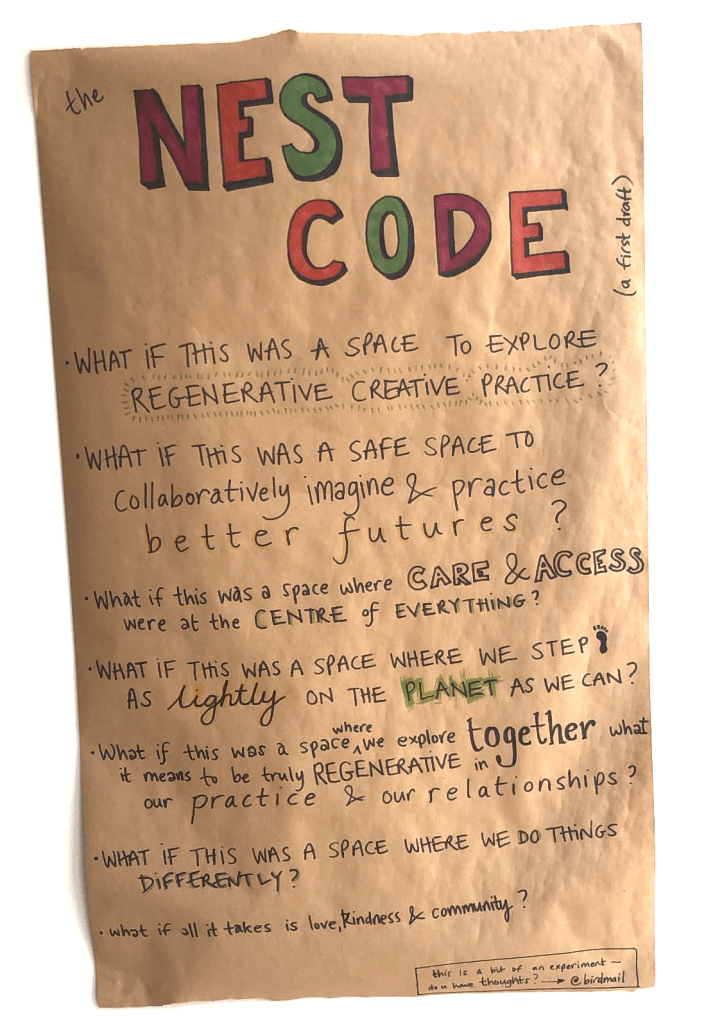 the
NEST
CODE
(a first draft)
·WHAT IF THIS WAS A SPACE TO EXPLORE
REGENERATIVE CREATIVE PRACTICE?
·WHAT IF THIS WAS A SAFE SPACE TO
collaboratively imagine & practice
better futures?
·What if this was a space where CARE & ACCESS
were at the CENTRE of EVERYTHING?
·WHAT IF THIS WAS A SPACE WHERE WE STEP
AS lightly ON THE PLANET AS WE CAN?
·What if this was a space where we explore together what
it means to be truly REGENERATIVE in
our practice & our relationships?
·WHAT IF THIS WAS A SPACE WHERE WE DO THINGS
DIFFERENTLY?
·what if all it takes is love, kindness & community?
this is a bit of an experiment –
do u have thoughts? → @birdmail